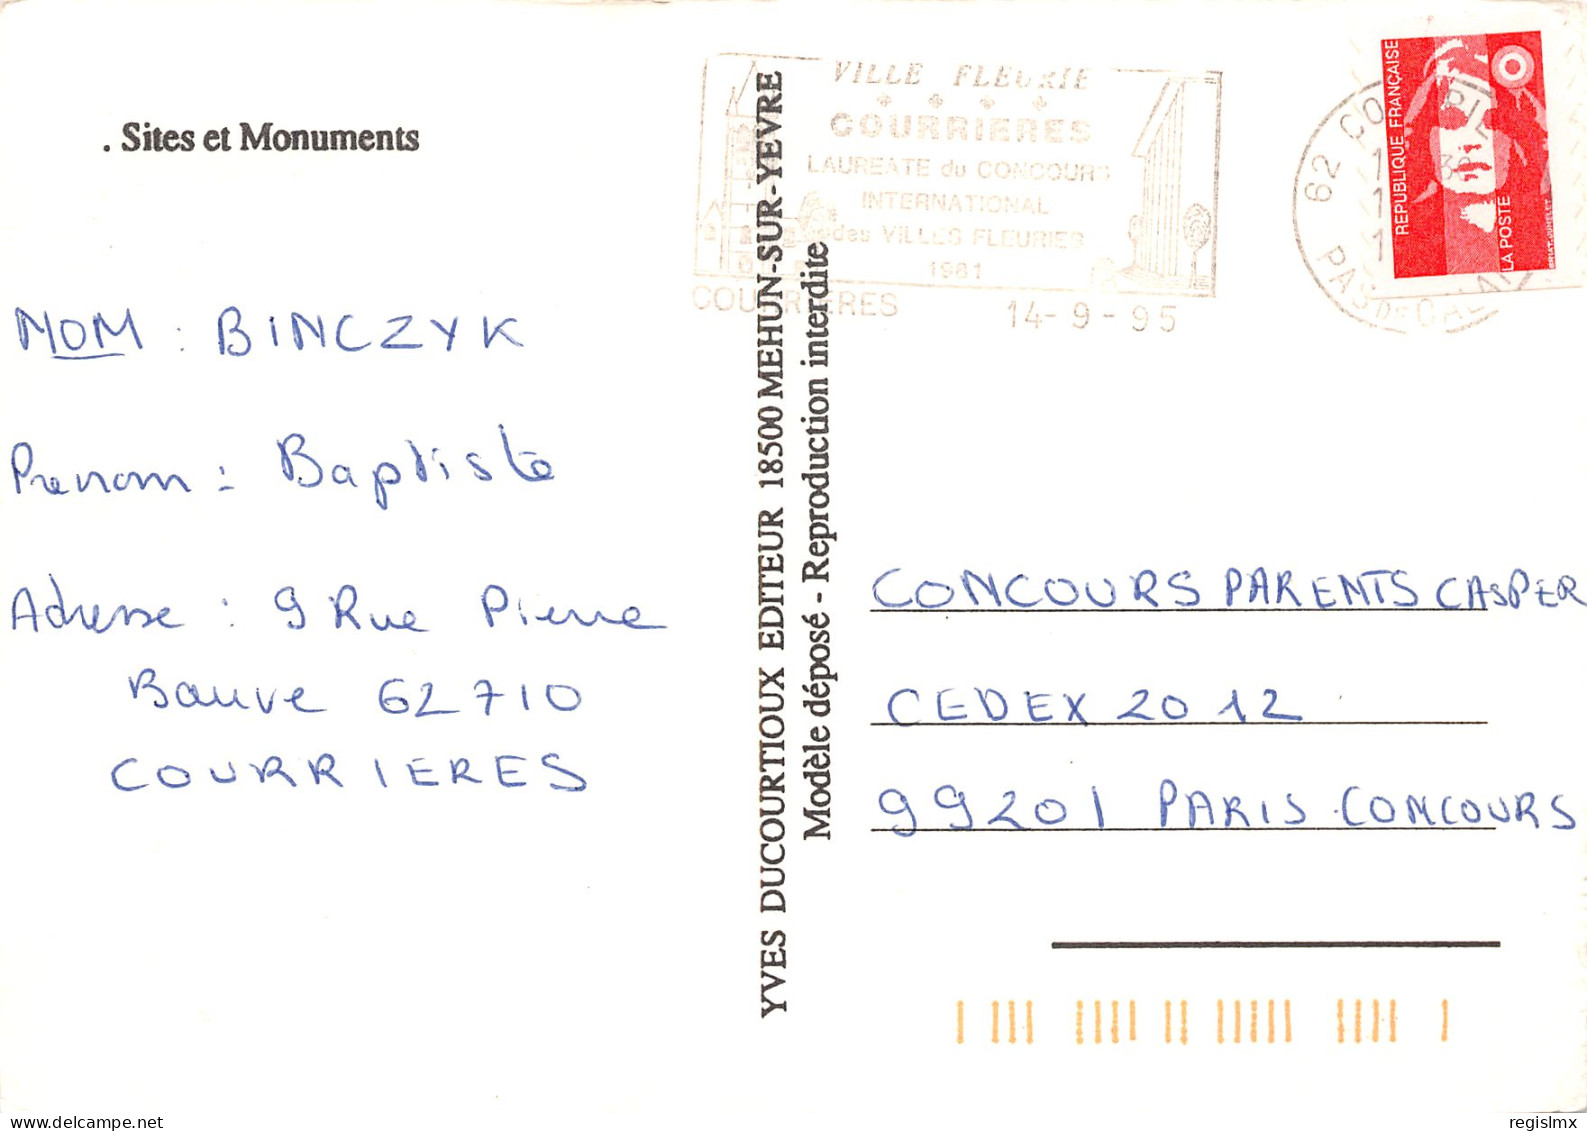 . Sites et Monuments
NOM : BINCZYK
Prenom : Baptiste
Adresse : 9 Rue Pierre
Bauve 62710
COURRIERES
YVES DUCOURTIOUX EDITEUR 18500 MEHUN-SUR-YEVRE
Modèle déposé - Reproduction interdite
VILLE FLEURIE
COURRIERES
LAUREATE du CONCOURS
INTERNATIONAL
des VILLES FLEURIES
1981
COURRIERES 14-9-95
62 CO
PAS DE CALAIS
REPUBLIQUE FRANÇAISE
LA POSTE
CONCOURS PARENTS CASPER
CEDEX 2012
99201 PARIS CONCOURS
regislmx